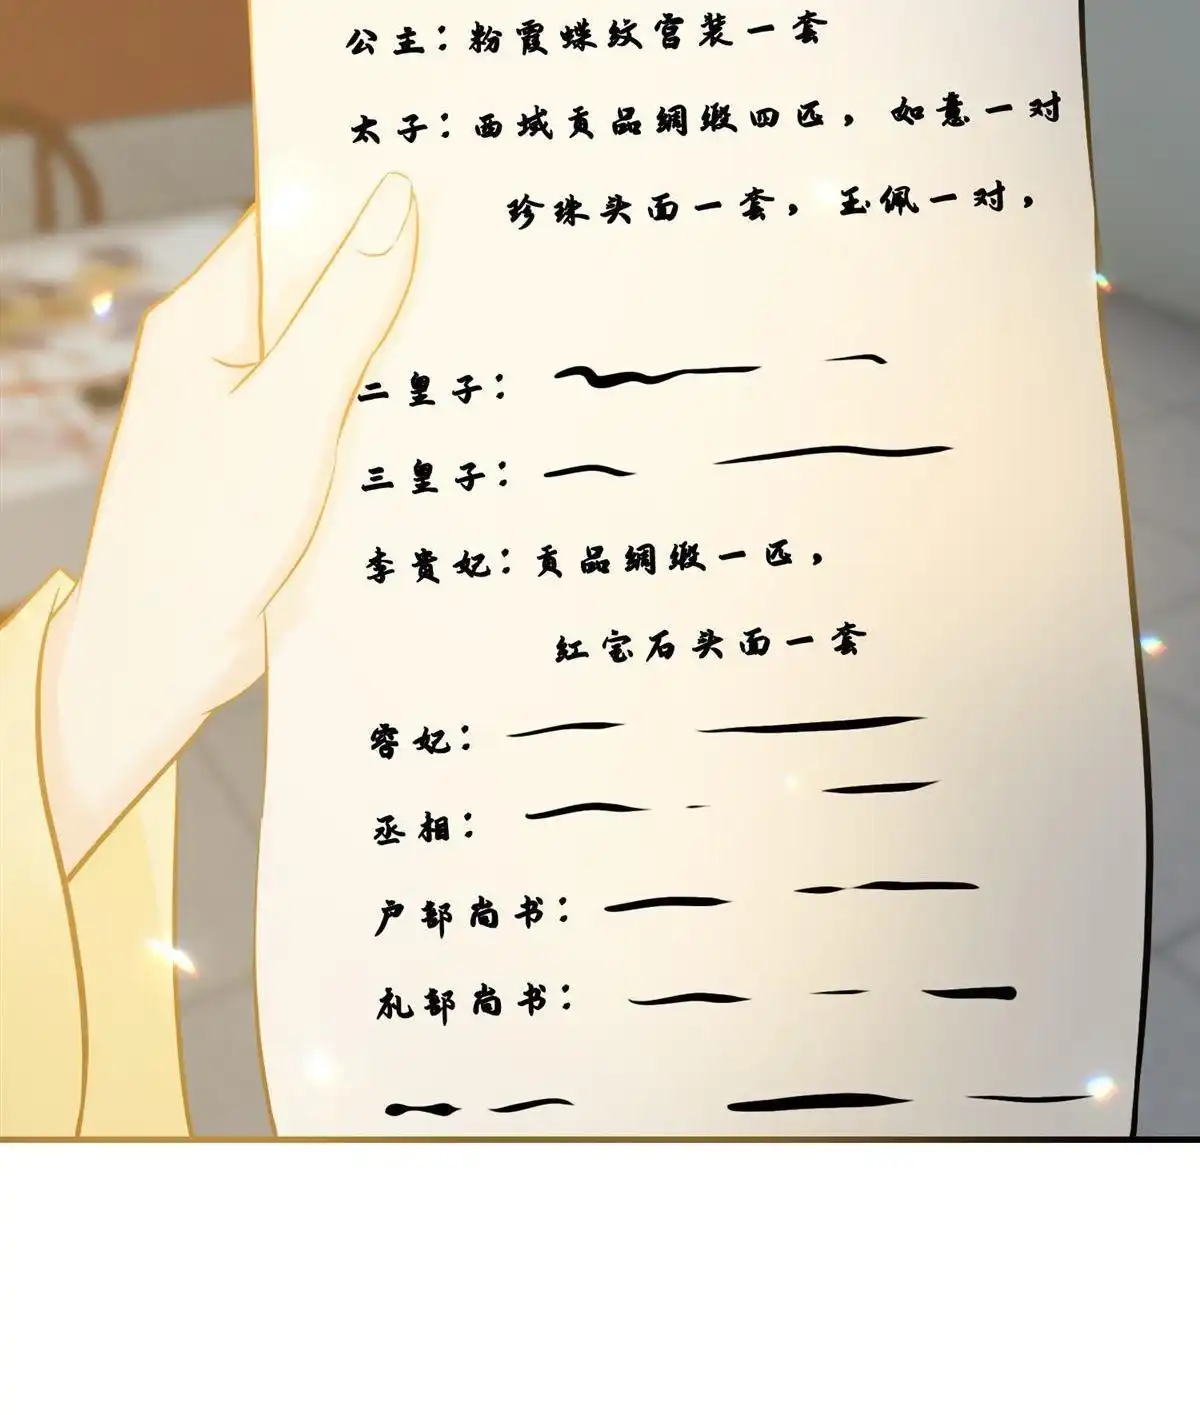 公主：粉霞蝶纹宫装一套
太子：西域贡品绸缎四匹，如意一对
珍珠头面一套，玉佩一对，
二皇子：
三皇子：
李贵妃：贡品绸缎一匹，
红宝石头面一套
容妃：
丞相：
户部尚书：
礼部尚书：